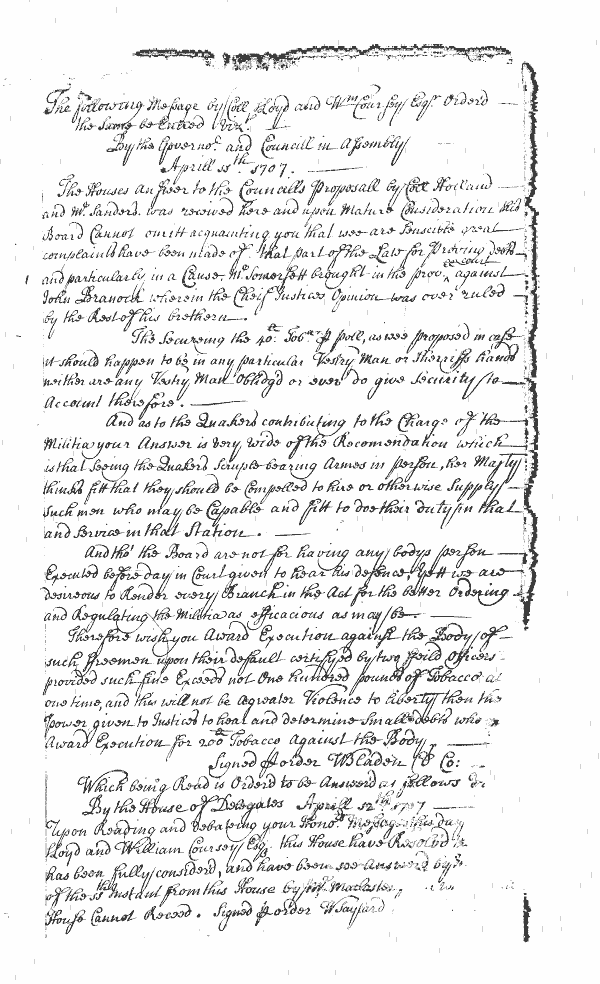 The following Message by Coll Lloyd and Wm Coursey Esqrs Orderd
the Same be Entred Vizt.
By the Governor. and Councill in Assembly
Aprill 11th 1707.
The Houses Answer to the Councills Proposall by Coll Holland
and Mr. Sanders. was received here and upon Mature Consideration this
Board Cannot omitt acquainting you that wee are Senscible great
complaints have been made of that part of the Law for Proving Debts
and particularly in a Cause Mr. Somersett brought in the prov: Court against
John Branock wherein the Cheif Justices Opinion was over ruled
by the Rest of his brethern.
The Secureing the 40th. Tobo. P poll, as wee proposed in case
it should happen to be in any particular Vestry Man or Sherriffs hands
neither are any Vestry Man Oblidg'd or ever do give Security to
Account therefore.
And as to the Quakers contributing to the Charge of the
Militia your Answer is very wide of the Recomendation which
is that Seeing the Quakers Scruple bearing Armes in person, her Majty
thinks fitt that they should be Compelled to hire or otherwise Supply
such men who may be Capable and fitt to doe their duty in that
and Service in that Station.
And tho' the Board are not for having any bodys person
Executed before day in Court given to hear his defence, yett we are
desireous to Render every Branch in the Act for the better Ordering
and Regulating the Militia as efficacious as may be
Therefore wish you Award Execution against the Body of
such freemen upon their default certifyed by two feild Officers
provided such fine Exceeds not One hundred pounds of Tobacco at
one time, and this will not be a greater Violence to liberty then the
power given to Justices to hear and determine Small debts who
Award Execution for 200th Tobacco against the Body
Signed P order W Bladen Cl Co:
Which being Read is Orderd to be Answerd as follows
By the House of Delegates Aprill 12th 1707
Upon Reading and debateing your Honrs. Message this day
Lloyd and William Coursey Esqs. this House have Resolvd
has been fully considerd, and have been Answerd by
of the 11th Instant from this House by
House Cannot Receed. Signed P order W Taylard